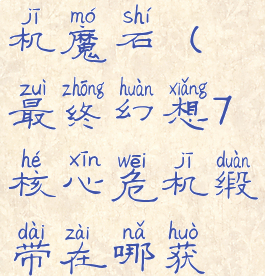 jī mó shí
机魔石（
zuì zhōng huàn xiǎng
最终幻想7
hé xīn wēi jī duàn
核心危机缎
dài zài nǎ huò
带在哪获